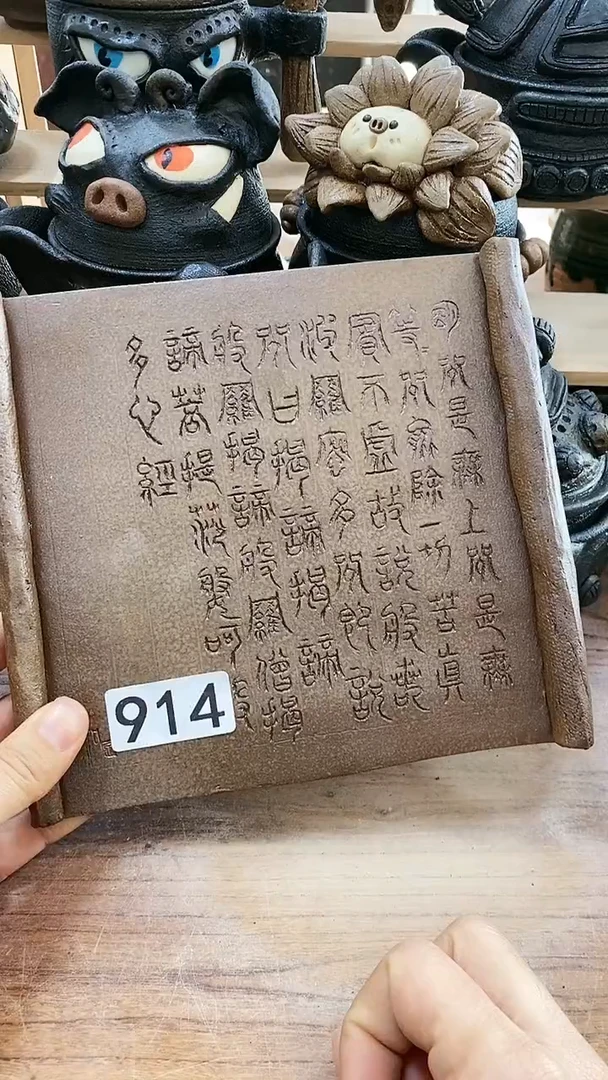 明咒是無上咒是無
等咒能除一切苦真
實不虛故說般若
波羅密多咒即說
咒曰揭諦揭諦
般羅揭諦般羅僧揭
諦菩提莎婆呵
多心經
914